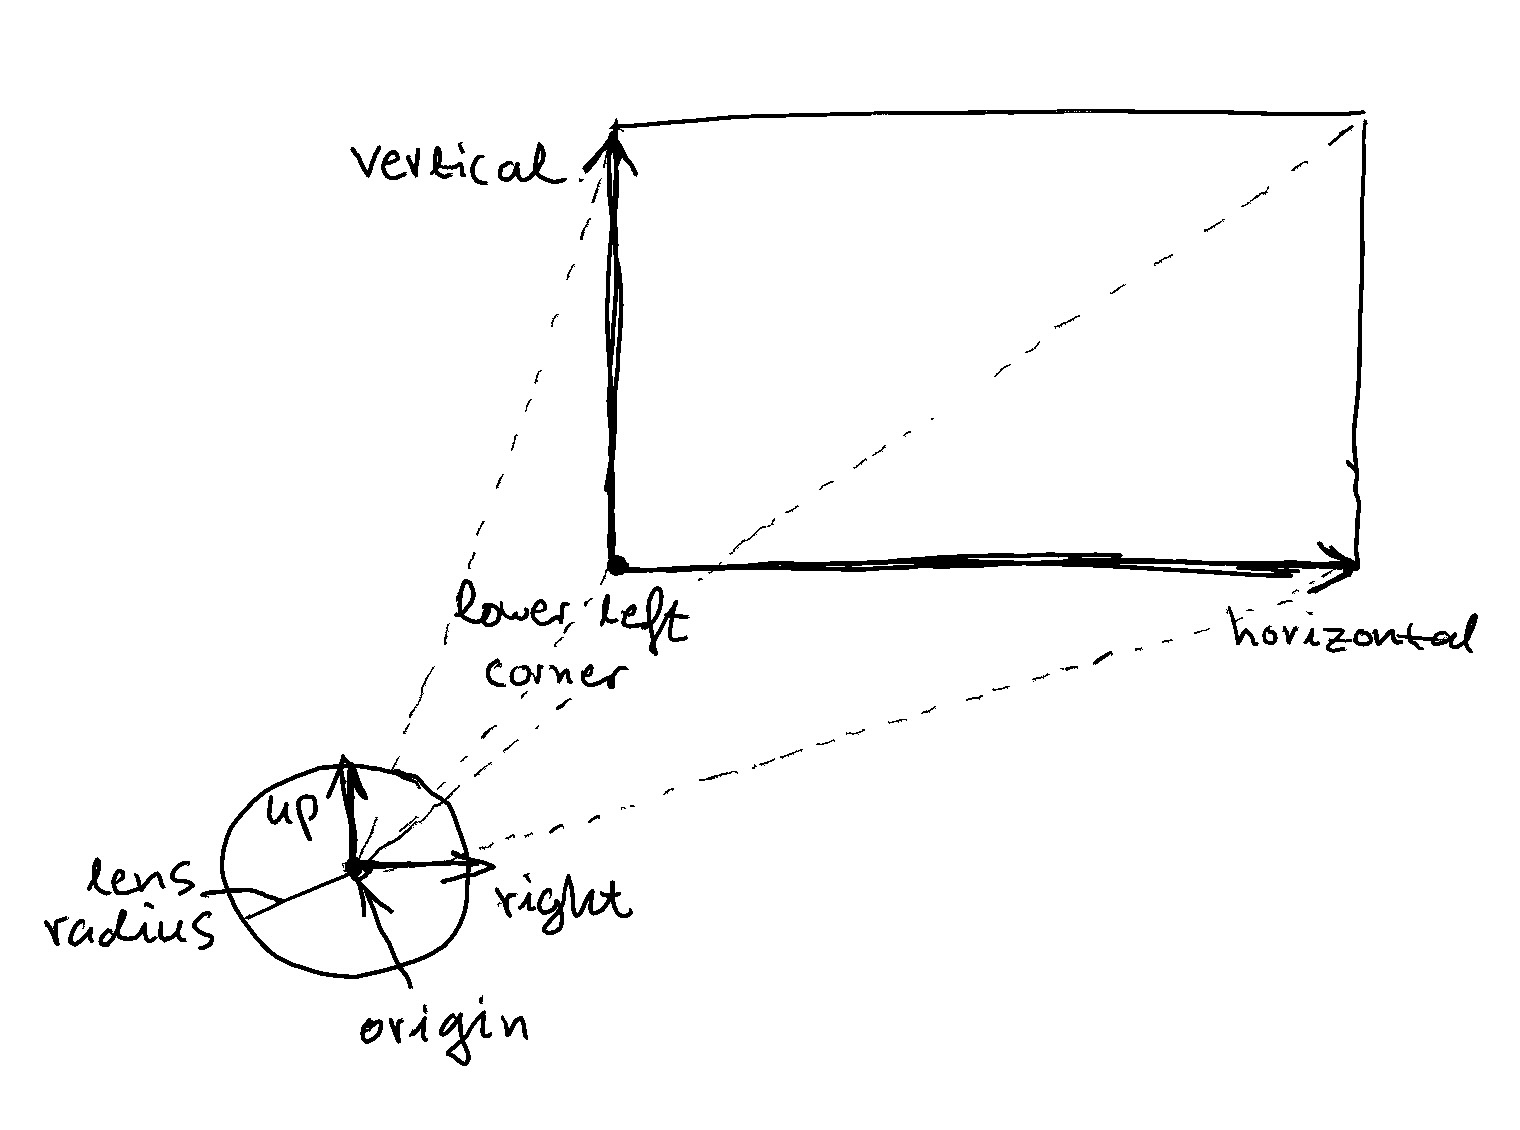 vertical
lower left
corner
horizontal
up
lens
radius
right
origin